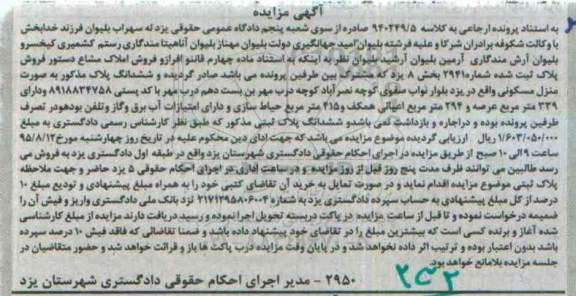 آگهی مزایده
به استناد پرونده ارجاعی به کلاسه ۹۴۰۲۴۹/۵ صادره از سوی شعبه پنجم دادگاه عمومی حقوقی یزد له سهراب بلیوان فرزند خدابخش
با وکالت شکوفه برادران شرکا و علیه فرشته بلیوان امید جهانگیری دولت بلیوان مهناز بلیوان آناهیتا مندگاری رستم کشمیری کیخسرو
بلیوان آرش مندگاری آرمین بلیوان آرشید بلیوان نظر به اینکه به استناد ماده چهارم قانون افراز و فروش املاک مشاع دستور فروش
پلاک ثبت شده شماره ۲۹۴۱ بخش ۸ یزد که مشترک بین طرفین پرونده می باشد صادر گردیده و ششدانگ پلاک مذکور به صورت
منزل مسکونی واقع در یزد بلوار نواب صفوی کوچه نصر آباد کوچه درب مهر بن بست دهم درب مهر با کد پستی ۸۹۱۸۸۳۴۷۵۸ ودارای
۳۳۹ متر مربع عرصه و ۲۹۴ متر مربع اعیانی همکف و۴۱۵ متر مربع حیاط سازی و دارای امتیازات آب برق وگاز وتلفن بوده ودر تصرف
طرفین پرونده بوده و دراجاره و بازداشت نمی باشدو ششدانگ پلاک ثبتی مذکور که طبق نظر کارشناس رسمی دادگستری به مبلغ
۱/۶۰۳/۰۵۰/۰۰۰ ریال ارزیابی گردیده موضوع مزایده می باشد که جهت ادای دین محکوم علیه در تاریخ روز چهارشنبه مورخ ۹۵/۸/۱۲
ساعت ۹ الی ۱۰ صبح از طریق مزایده در اجرای احکام حقوقی دادگستری شهرستان یزد واقع در طبقه اول دادگستری یزد به فروش می
رسد طالبین می توانند ظرف مدت پنج روز قبل از روز مزایده و در ساعت اداری در اجرای احکام حقوقی ۵ یزد حاضر و جهت ملاحظه
پلاک ثبتی موضوع مزایده اقدام نماید و در صورت تمایل به خرید آن تقاضای کتبی خود را به همراه مبلغ پیشنهادی و تودیع مبلغ ۱۰
درصد از کل مبلغ پیشنهادی به حساب سپرده دادگستری یزد به شماره ۲۱۷۱۲۹۵۸۰۶۰۰۴ نزد بانک ملی دادگستری واریز و فیش آن را
ضمیمه درخواست نموده و تا قبل از ساعت مزایده در پاکت دربسته تحویل اجرا نموده و رسید دریافت دارند مزایده از مبلغ کارشناسی
شده آغاز و برنده کسی است که بیشترین مبلغ را در تقاضای خود پیشنهاد داده باشد و ضمنا تقاضائی که فاقد فیش ۱۰ درصد سپرده
باشد بدون اعتبار بوده و ترتیب اثر داده نخواهد شد و در پایان وقت مزایده درب پاکت ها باز و قرائت خواهد شد و حضور متقاضیان در
جلسه مزایده بلامانع خواهد بود.
۲۹۵۰ - مدیر اجرای احکام حقوقی دادگستری شهرستان یزد